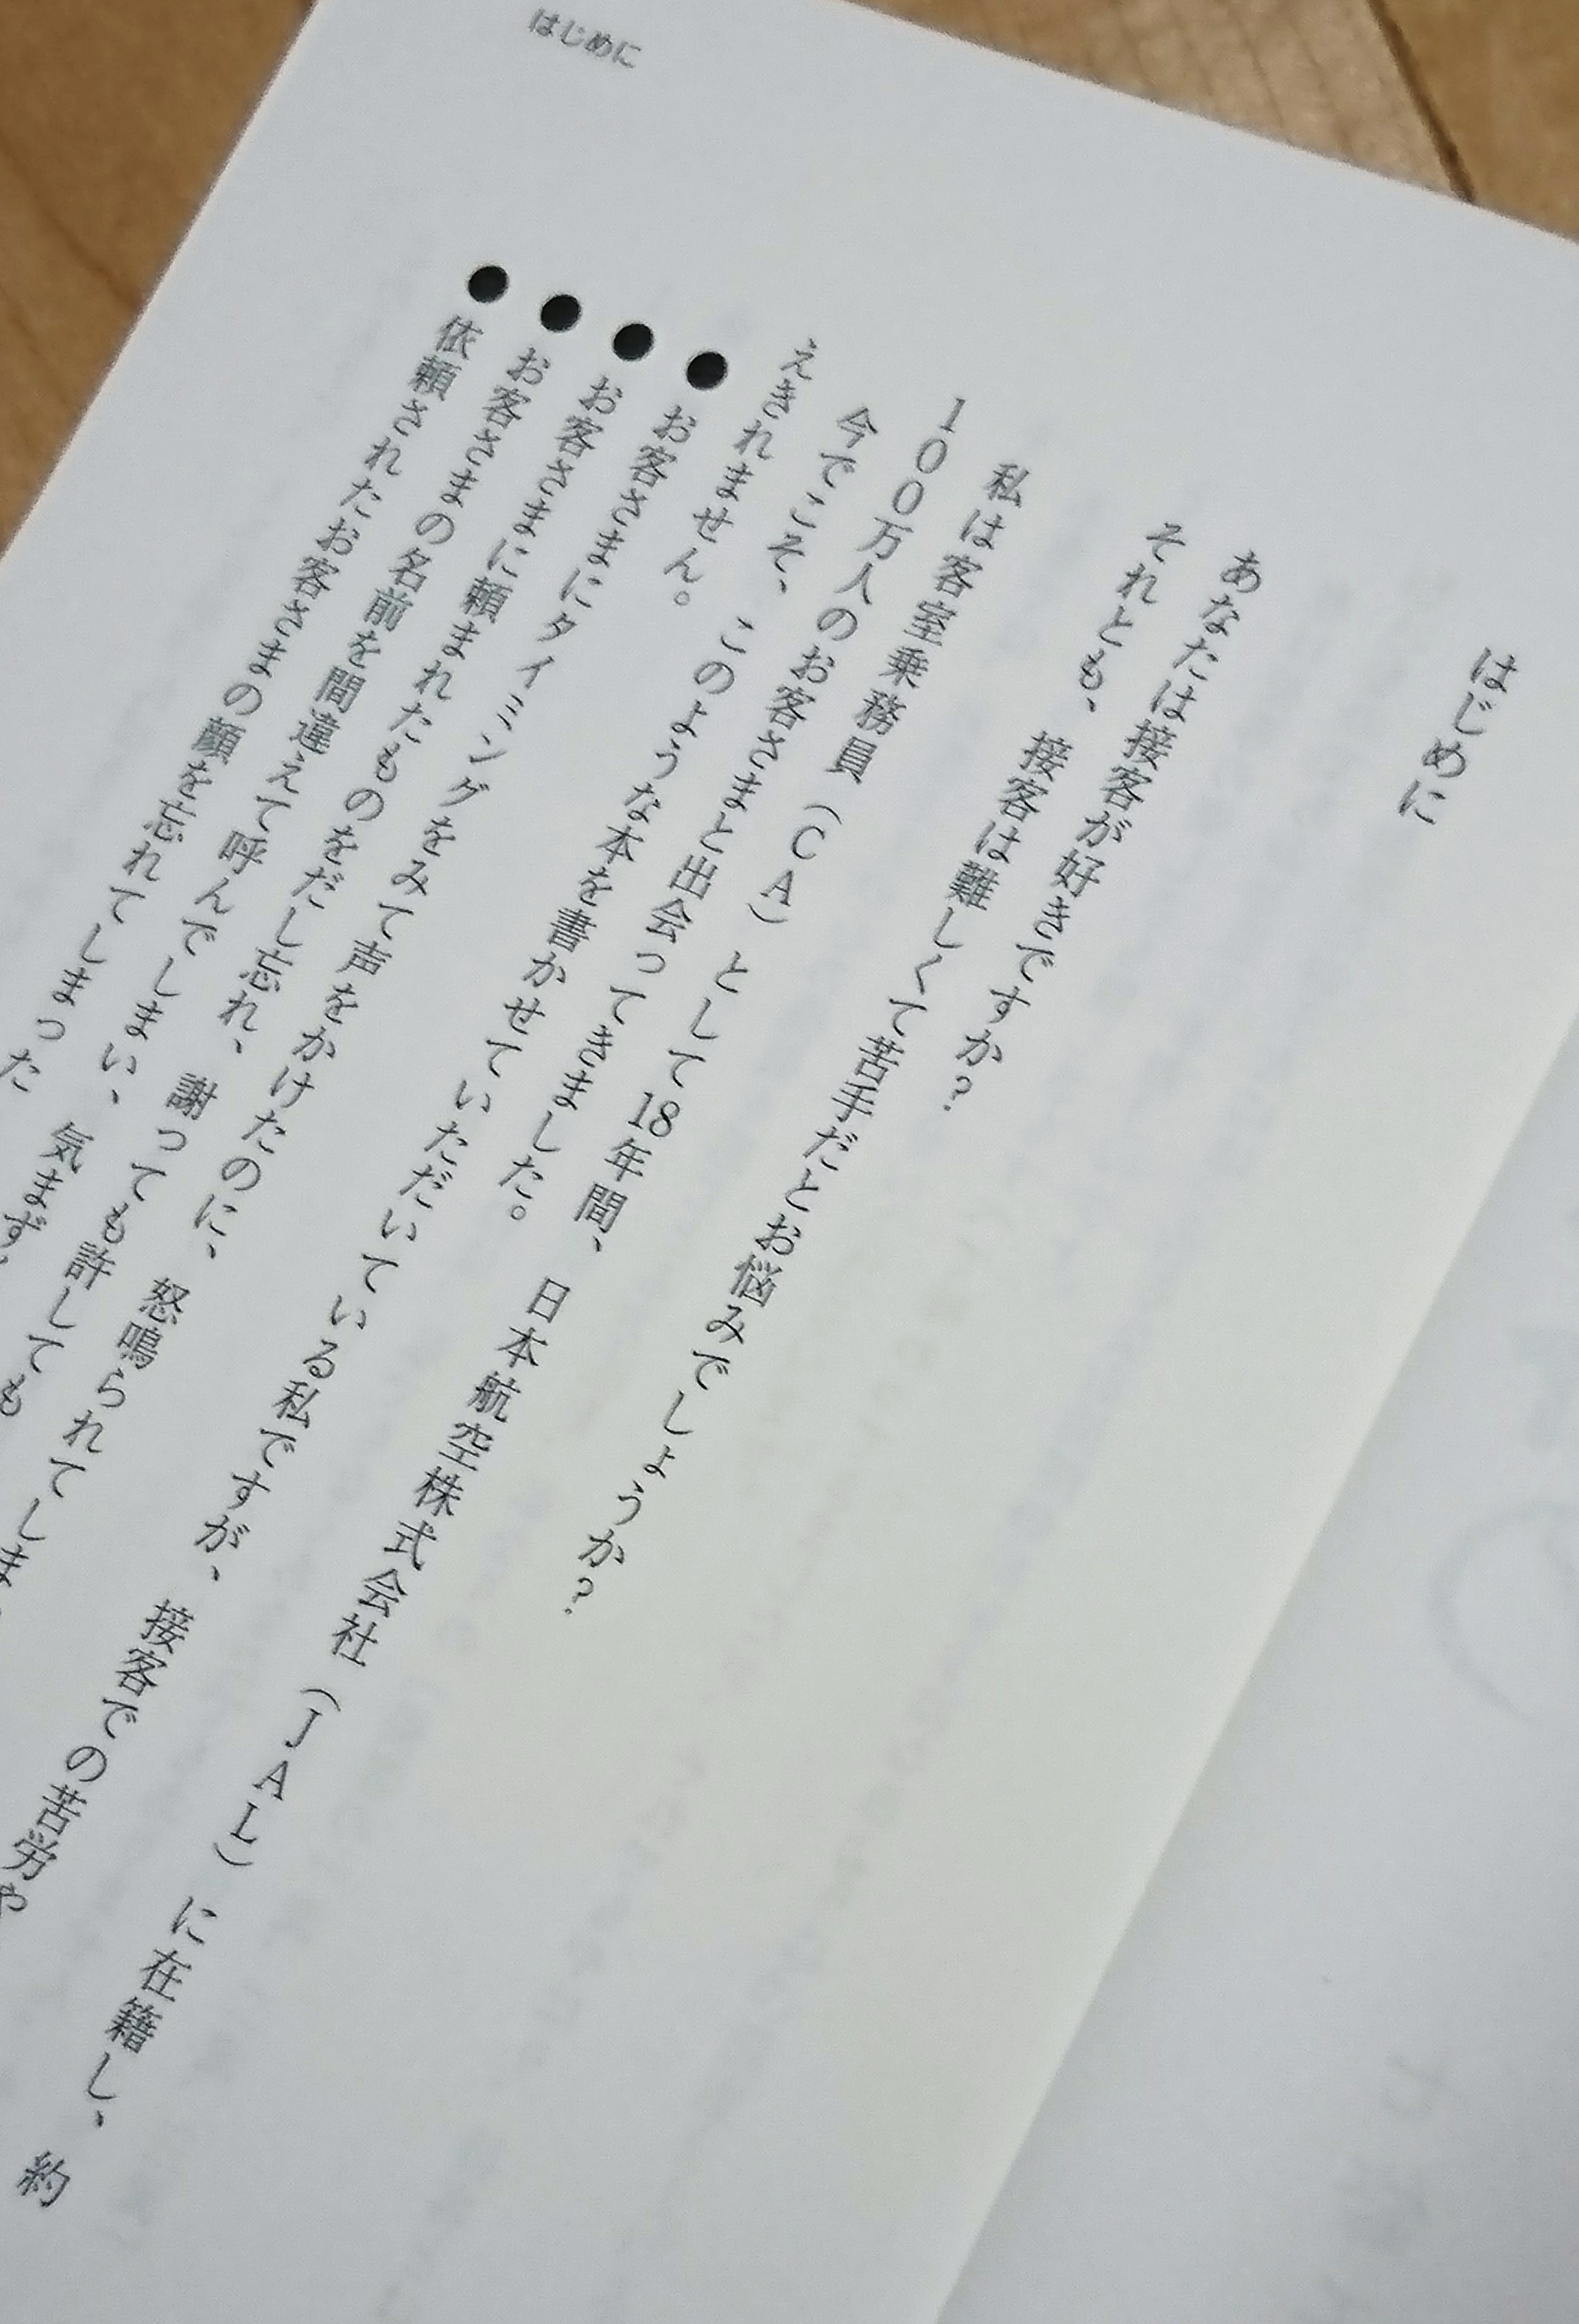 はじめに
はじめに
あなたは接客が好きですか?
それとも、接客は難しくて苦手だとお悩みでしょうか?
私は客室乗務員(CA)として18年間、日本航空株式会社(JAL)に在籍し、約
100万人のお客さまと出会ってきました。
今でこそ、このような本を書かせていただいている私ですが、接客での苦労や
えきれません。
●お客さまにタイミングをみて声をかけたのに、怒鳴られてしま
●お客さまに頼まれたものをだし忘れ、謝っても許しても
●お客さまの名前を間違えて呼んでしまい、気まず
●依頼されたお客さまの顔を忘れてしまった